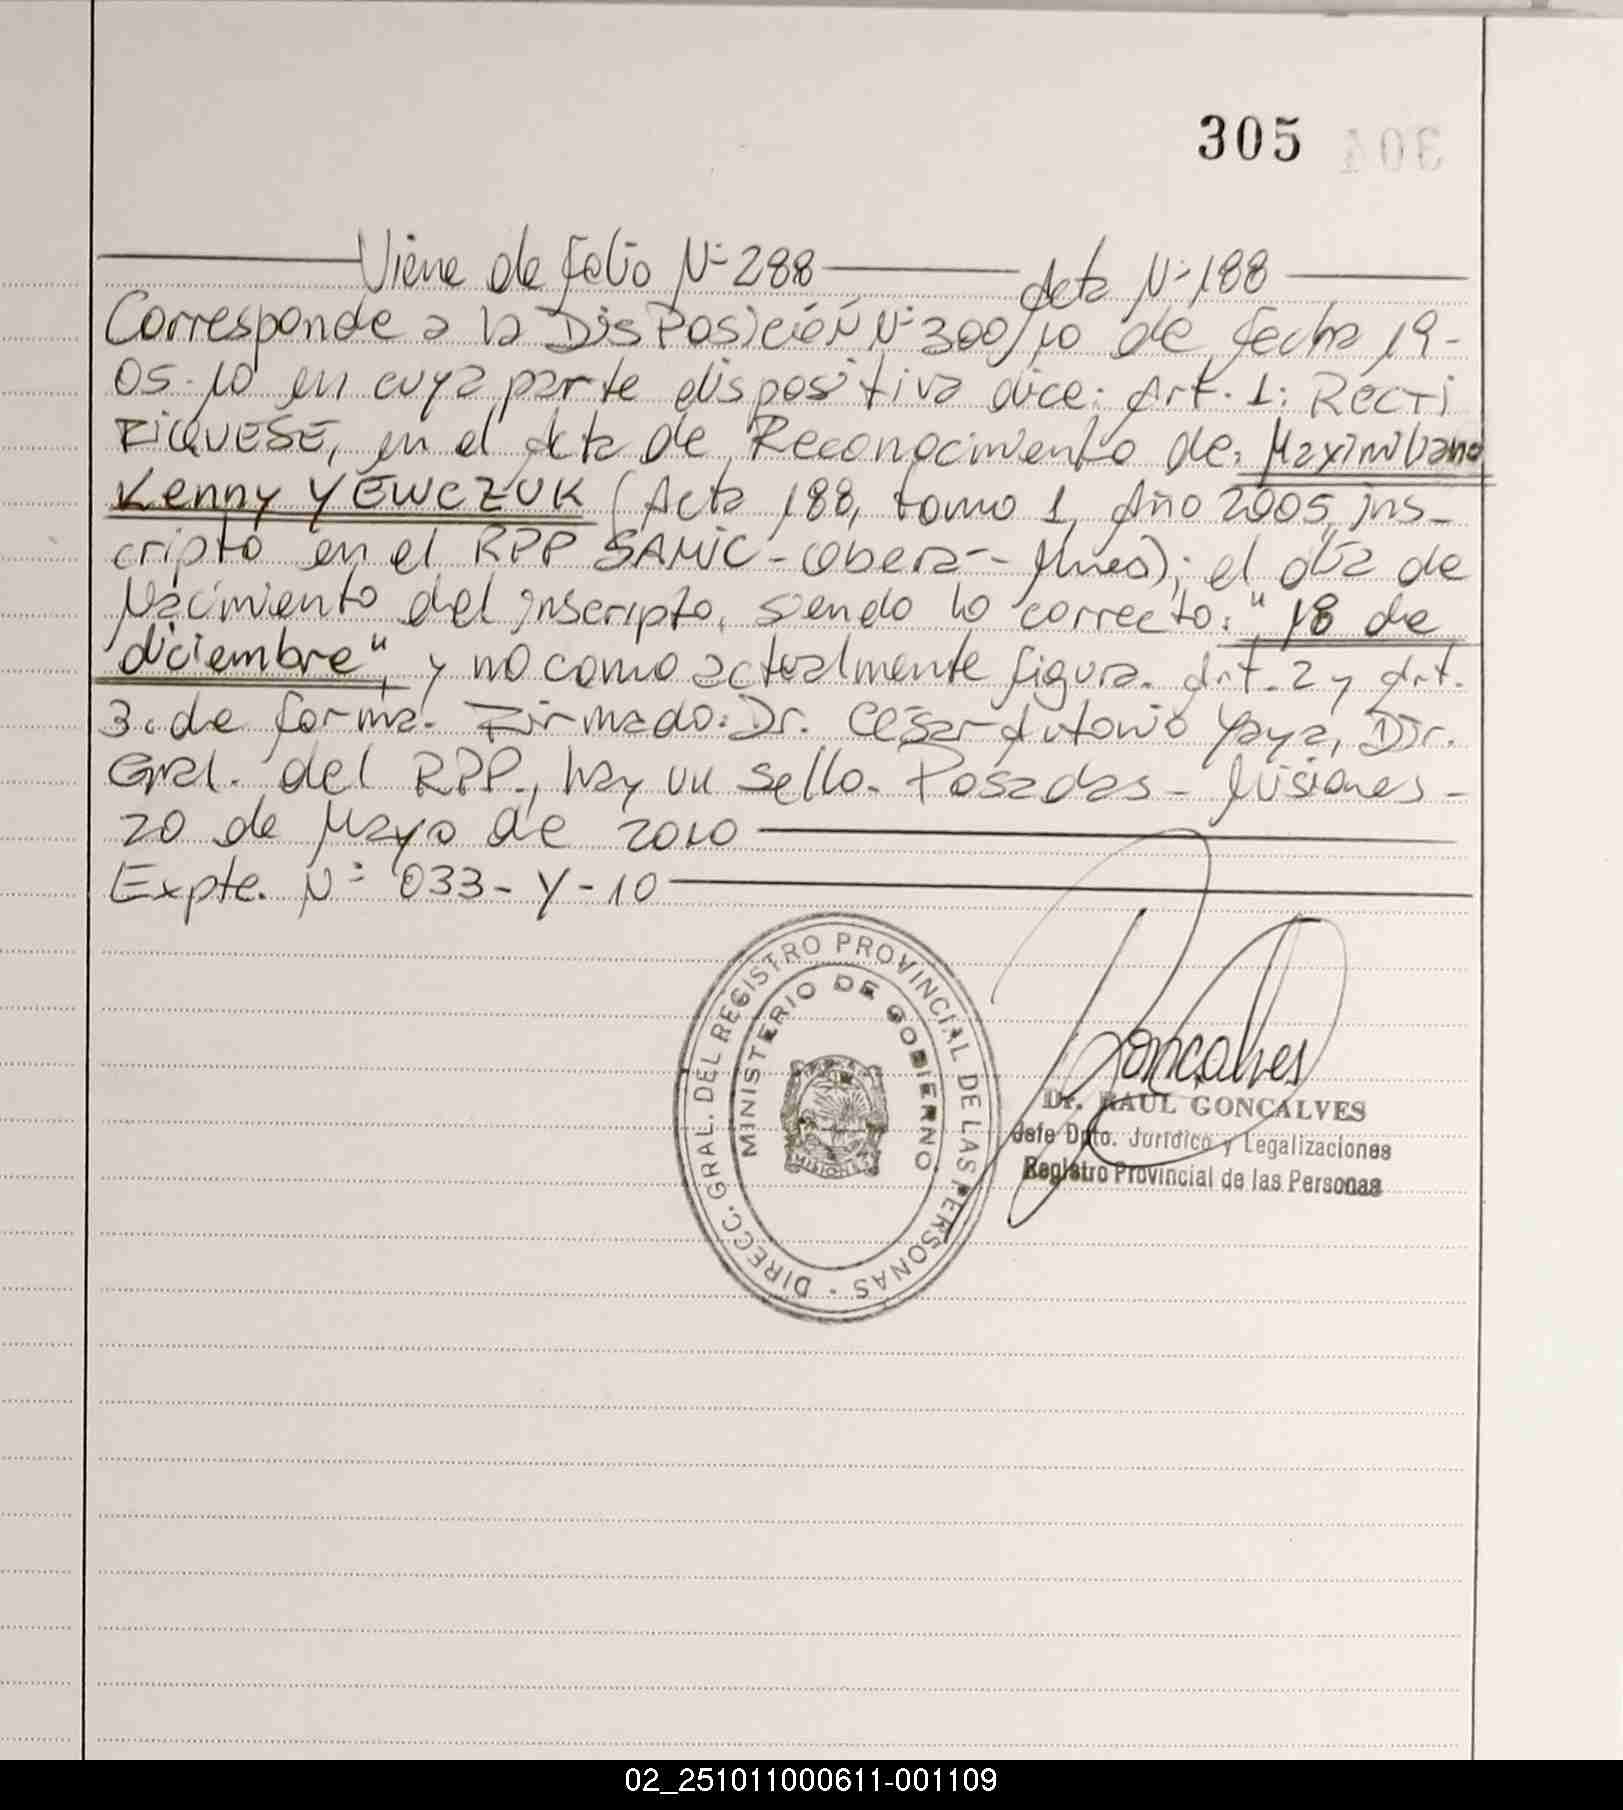 305
Viene de folio Nº 288 Acta Nº 188
Corresponde a la DISPOSICIÓN Nº 300/10 de fecha 19-
05-10 en cuya parte dispositiva dice: Art. 1: RECTI
FIQUESE, en el Acta de Reconocimiento de: Maximiliano
Kenny YEWCZUK (Acta 188, tomo 1, Año 2005, ins-
cripto en el RPP SAMIC - Oberá - Mnes); el día de
Nacimiento del inscripto, siendo lo correcto: "18 de
diciembre", y no como actualmente figura. Art. 2 y Art.
3: de forma. Firmado: Dr. César Antonio Yaya, Dir.
Gral. del RPP., hay un sello. Posadas - Misiones -
20 de Mayo de 2010
Expte. Nº 033-Y-10
DIRECC. GRAL. DEL REGISTRO PROVINCIAL DE LAS PERSONAS
MINISTERIO DE GOBIERNO
MISIONES
Goncalves
Dr. RAUL GONCALVES
Jefe Dpto. Jurídico y Legalizaciones
Registro Provincial de las Personas
02_251011000611-001109